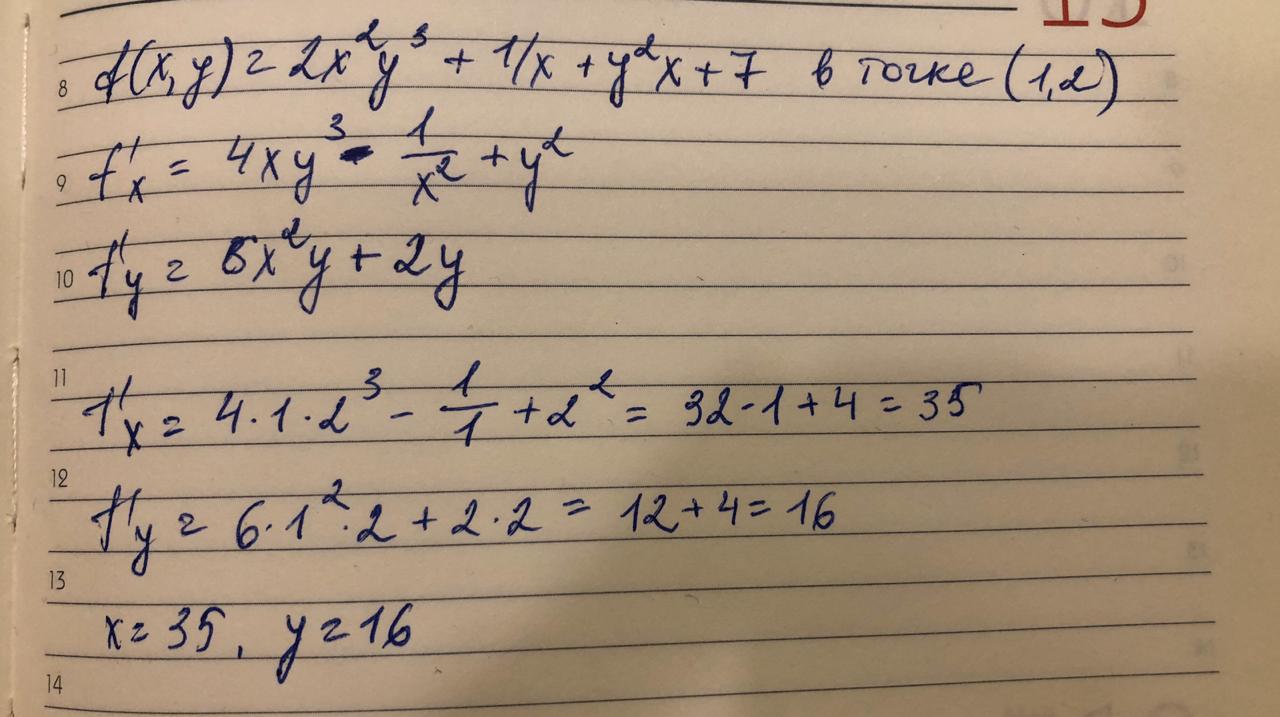 8 f(x,y) = 2x²y³ + 1/x + y²x + 7 в точке (1,2)
9 f'x = 4xy³ - 1/x² + y²
10 f'y = 6x²y + 2y
11
f'x = 4·1·2³ - 1/1 + 2² = 32-1+4 = 35
12
f'y = 6·1²·2 + 2·2 = 12+4=16
13
x=35, y=16
14